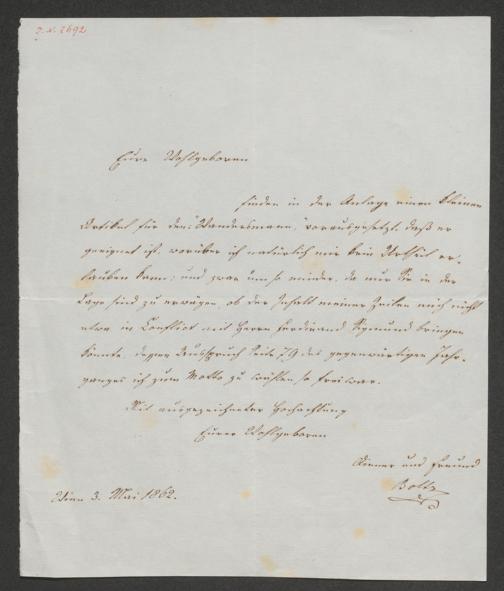 J. N. 2692
Eure Wohlgeboren
finden in der Anlage einen kleinen
Artikel für den „Wandersmann", vorausgesetzt, daß er
geeignet ist, worüber ich natürlich mir kein Urtheil er-
lauben kann; und zwar um so minder, da nur Sie in der
Lage sind zu erwägen, ob der Inhalt meiner Zeilen mich nicht
etwa in Conflict mit Herrn Ferdinand Sigmund bringen
könnte, dessen Ausspruch Seite 79 des gegenwärtigen Jahr-
ganges ich zum Motto zu wählen so frei war.
Mit ausgezeichneter Hochachtung
Eurer Wohlgeboren
Diener und Freund
Boltz
Wien 3. Mai 1862.